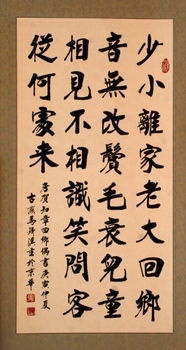 少小離家老大回鄉
音無改鬢毛衰兒童
相見不相識笑問客
從何處来
賀知章回鄉偶書庚寅仲夏
古燕馬書於京華